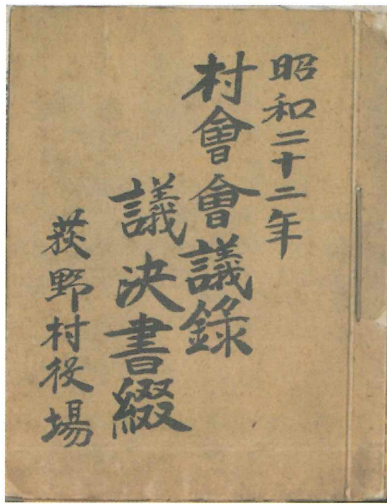 昭和二十二年
村會會議録
議決書綴
荻野村役場